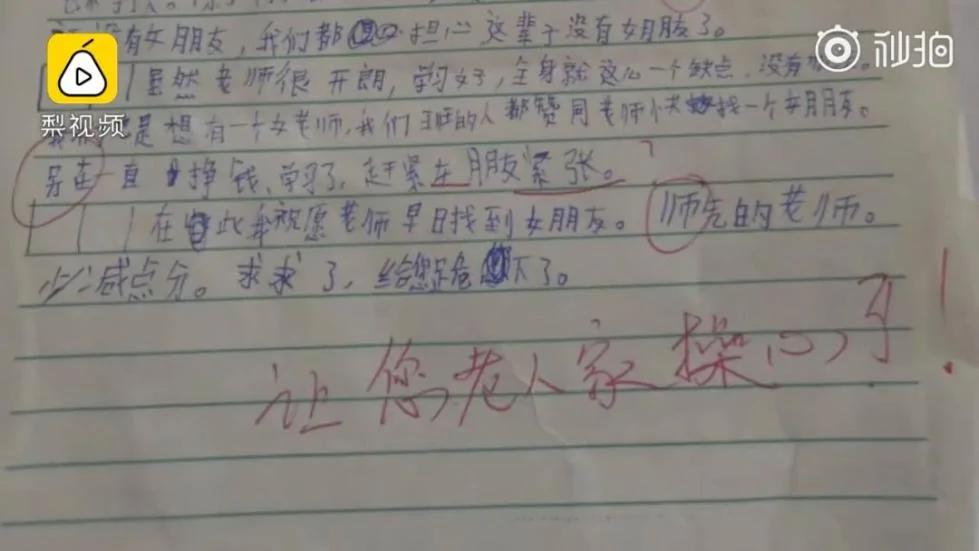 没有女朋友，我们都担心这辈子没有女朋友了。
虽然老师很开朗，学习好，全身就这么一个缺点，没有
是想有一个女老师，我们班的人都赞同老师快找一个女朋友。
另在一直挣钱、学习了，赶紧在朋友紧张。
在此我祝愿老师早日找到女朋友。师先的老师。
少减点分。求求了，给您足危下了。
让您老人家操心了！
梨视频
秒拍